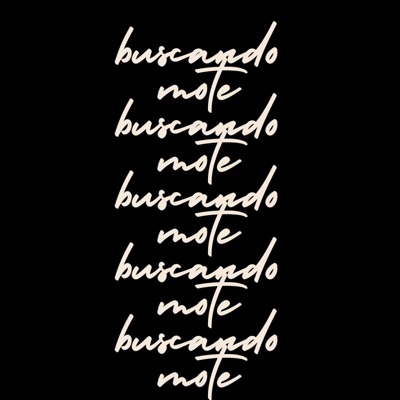 buscando
mote
buscando
mote
buscando
mote
buscando
mote
buscando
mote